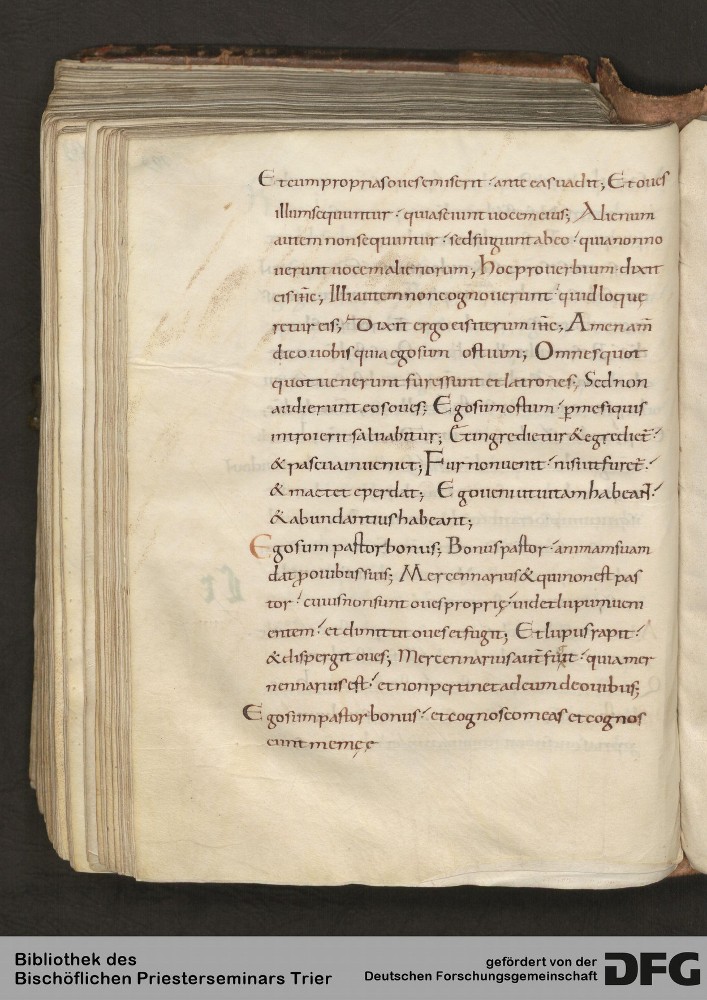 Et cum proprias oves emiserit · ante eas vadit; Et oves
illum sequuntur · quia sciunt vocem eius; Alienum
autem non sequuntur · sed fugiunt ab eo · quia non no
verunt vocem alienorum; Hoc proverbium dixit
eis ihc; Illi autem non cognoverunt quid loque
retur eis; Dixit ergo eis iterum ihc; Amen am̅
dico vobis quia ego sum ostium; Omnes quot
quot venerunt fures sunt et latrones; Sed non
audierunt eos oves; Ego sum ostium · p̱ me siquis
introierit salvabitur; Et ingredietur & egrediet̅ ·
& pascua inveniet; Fur non venit · nisi ut furet̅ ·
& mactet e perdat; Ego veni ut vitam habeant ·
& abundantius habeant;
Ego sum pastor bonus; Bonus pastor · animam suam
dat p̱ ovibus suis; Mercennarius & qui non est pas
tor · cuius non sunt oves proprię · videt lupum veni
entem · et dimittit oves et fugit; Et lupus rapit ·
& dispergit oves; Mercennarius aut̅ fugit · quia mer
nennarius est · et non pertinet ad eum de ovibus;
Ego sum pastor bonus · et cognosco meas et cognos
cunt me męe
Bibliothek des
Bischöflichen Priesterseminars Trier
gefördert von der
Deutschen Forschungsgemeinschaft
DFG